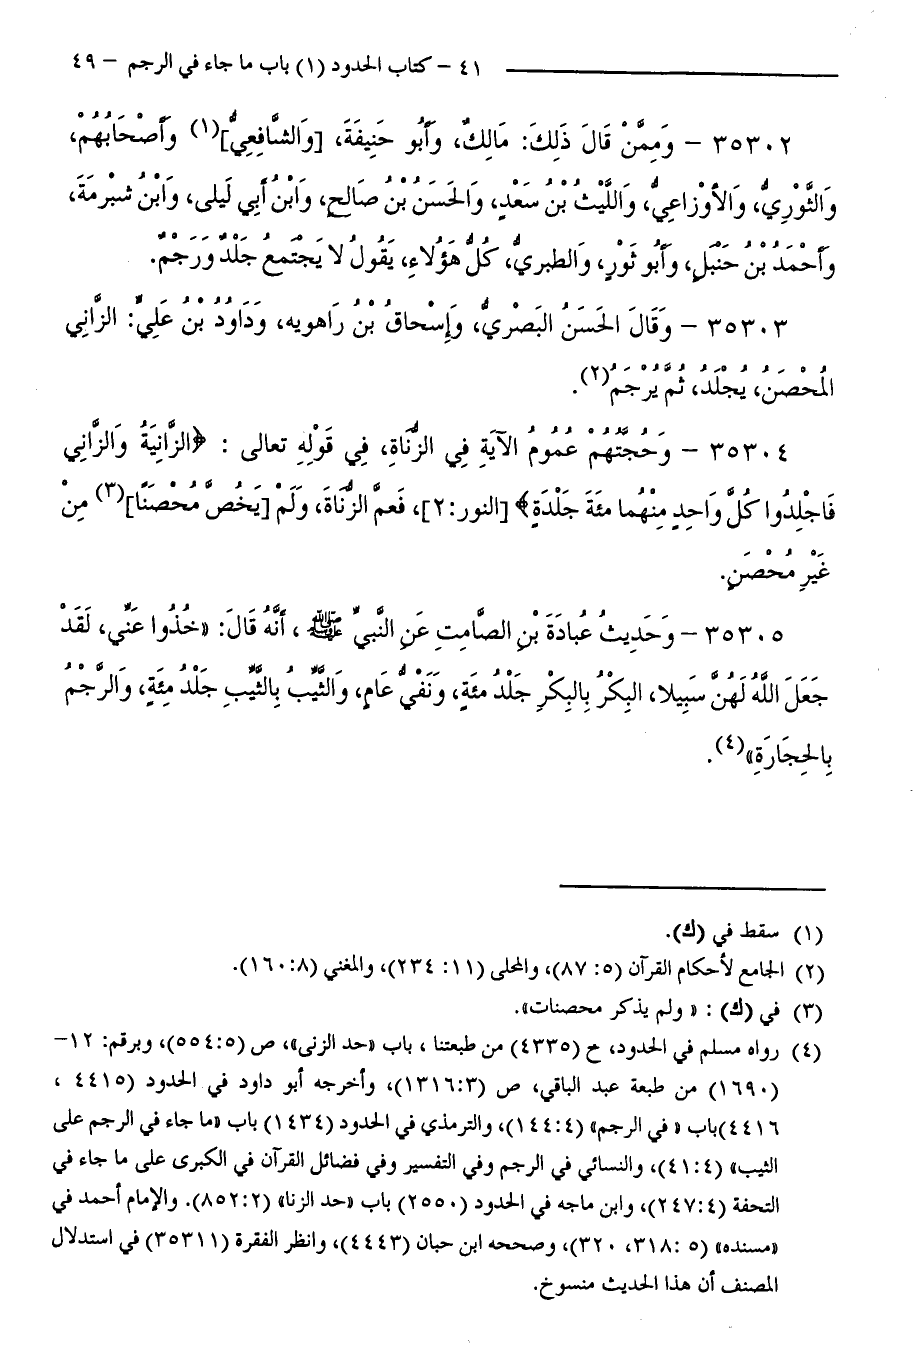 ٤١ – كتاب الحدود (١) باب ما جاء في الرجم – ٤٩
٣٥٣٠٢ – وَمِمَّنْ قَالَ ذَلِكَ: مَالِكٌ، وَأَبُو حَنِيفَةَ، [وَالشَّافِعِيُّ](١) وَأَصْحَابُهُمْ،
وَالثَّوْرِيُّ، وَالأوْزَاعِيُّ، وَاللَّيْثُ بْنُ سَعْدٍ، وَالحَسَنُ بْنُ صَالِحٍ، وَابْنُ أَبِي لَيلى، وَابْنُ شبْرمَةَ،
وَأَحْمَدُ بْنُ حَنْبَلٍ، وَأَبُو ثَوْرٍ، وَالطبريُّ، كُلُّ هَؤُلَاءِ، يَقُولُ لَا يَجْتَمعُ جَلْدٌ وَرَجْمٌ.
٣٥٣٠٣ – وَقَالَ الحَسَنُ البَصْرِيُّ، وَإِسْحاقُ بْنُ رَاهويه، وَدَاوُدُ بْنُ عَلِيٍّ: الزَّانِي
المُحْصَنُ، يُجْلَدُ، ثُمَّ يُرْجَمُ(٢).
٣٥٣٠٤ – وَحُجَّتُهُمْ عُمُومُ الآيَةِ فِي الزُّنَاةِ، فِي قَوْلِهِ تعالى : ﴿الزَّانِيَةُ وَالزَّانِي
فَاجْلِدُوا كُلَّ وَاحِدٍ مِنْهُما مئَةَ جَلْدَةٍ﴾ [النور:٢]، فَعمَّ الزُّنَاةَ، وَلَمْ [يَخُصَّ مُحْصَنًا](٣) مِنْ
غَيْرِ مُحْصَنٍ.
٣٥٣٠٥ – وَحَدِيثُ عُبادَةَ بْنِ الصَّامِتِ عَنِ النَّبيِّ ﷺ ، أَنَّهُ قَالَ: «خُذُوا عَنِّي، لَقَدْ
جَعَلَ اللَّهُ لَهُنَّ سَبِيلا، البكْرُ بِالبكْرِ جَلْدُ مئَةٍ، وَنَفْيُ عَامٍ، وَالثَّيِّبُ بِالثَّيِّبِ جَلدُ مِئَةٍ، وَالرَّجْمُ
بِالحِجَارَةِ»(٤).
(١) سقط في (ك).
(٢) الجامع لأحكام القرآن (٥: ٨٧)، والمحلى (١١: ٢٣٤)، والمغني (٨: ١٦٠).
(٣) في (ك) : « ولم يذكر محصنات».
(٤) رواه مسلم في الحدود، ح (٤٣٣٥) من طبعتنا ، باب «حد الزنى»، ص (٥: ٥٥٤)، وبرقم: ١٢–
(١٦٩٠) من طبعة عبد الباقي، ص (٣: ١٣١٦)، وأخرجه أبو داود في الحدود (٤٤١٥ ،
٤٤١٦)باب « في الرجم» (٤: ١٤٤)، والترمذي في الحدود (١٤٣٤) باب «ما جاء في الرجم على
الثيب» (٤: ٤١)، والنسائي في الرجم وفي التفسير وفي فضائل القرآن في الكبرى على ما جاء في
التحفة (٤: ٢٤٧)، وابن ماجه في الحدود (٢٥٥٠) باب «حد الزنا» (٢: ٨٥٢). والإمام أحمد في
«مسنده» (٥ :٣١٨، ٣٢٠)، وصححه ابن حبان (٤٤٤٣)، وانظر الفقرة (٣٥٣١١) في استدلال
المصنف أن هذا الحديث منسوخ.